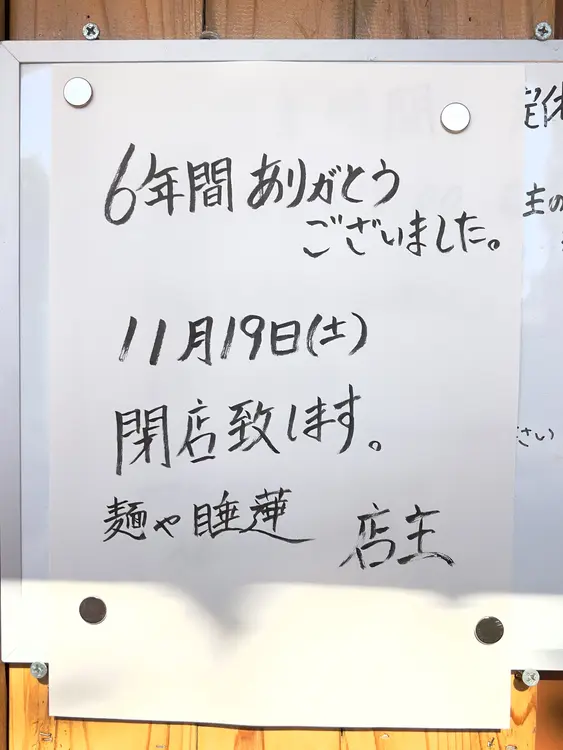 6年間ありがとう
ございました。
11月19日(土)
閉店致します。
麺や睡蓮 店主
定休
主の
さい